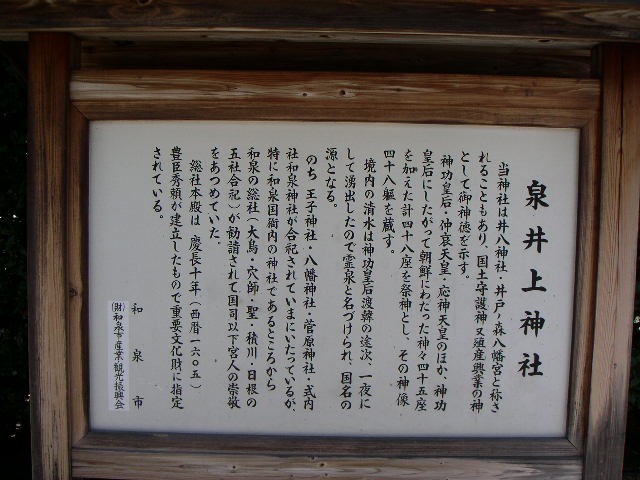 泉井上神社
当神社は井八神社・井戸ノ森八幡宮と称さ
れることもあり、国土守護神又殖産興業の神
として御神徳を示す。
神功皇后・仲哀天皇・応神天皇のほか、神功
皇后にしたがって朝鮮にわたった神々四十五座
を加えた計四十八座を祭神とし、その神像
四十八軀を蔵す。
境内の清水は神功皇后渡韓の途次、一夜に
して湧出したので霊泉と名づけられ、国名の
源となる。
のち 王子神社・八幡神社・菅原神社・式内
社和泉神社が合祀されていまにいたっているが、
特に和泉国衙内の神社であるところから
和泉の総社(大鳥・穴師・聖・積川・日根の
五社合祀)が勧請されて国司以下宮人の崇敬
をあつめていた。
総社本殿は 慶長十年(西暦一六〇五)
豊臣秀頼が建立したもので重要文化財に指定
されている。
和泉市
(財)和泉市産業・観光振興会